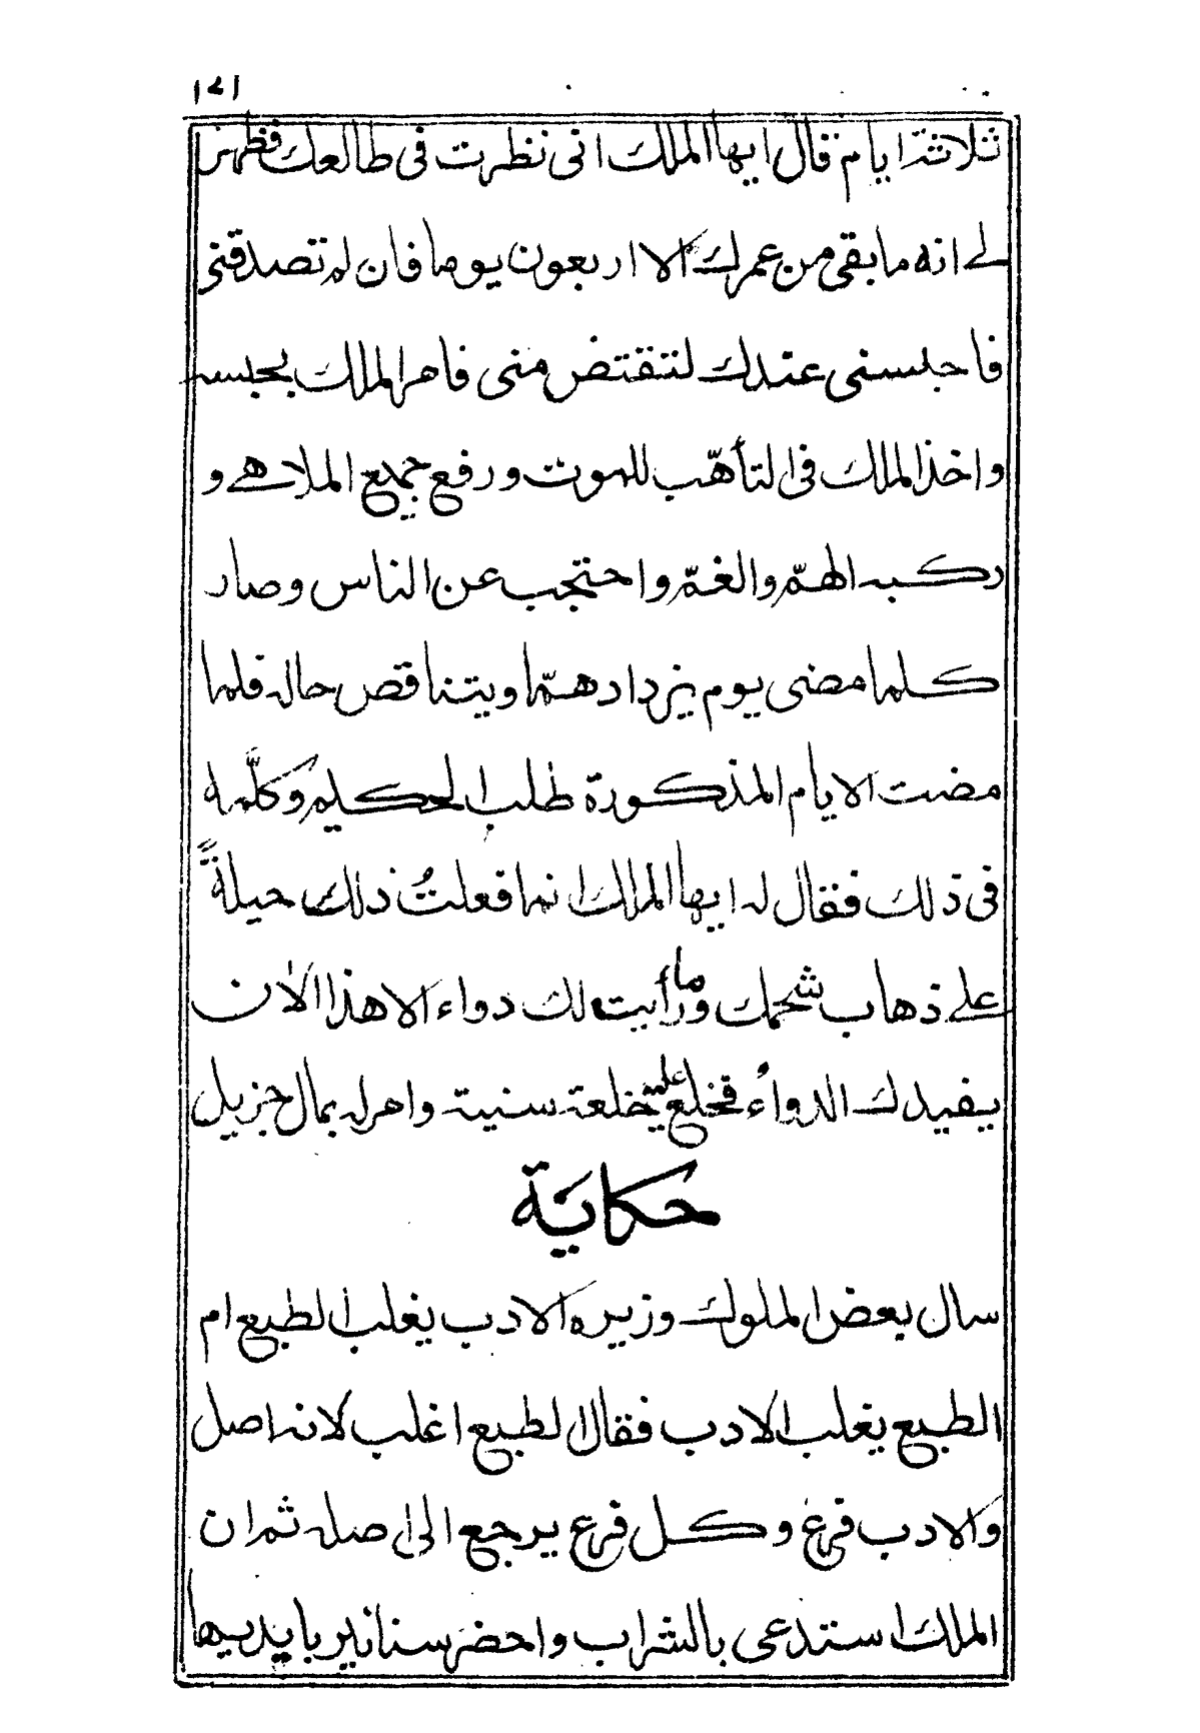 ١٢١
ثلاثة ايام قال ايها الملك انى نظرت فى طالعك فظهر
لى انه ما بقى من عمرك الا اربعون يوما فان لم تصدقنى
فاحبسنى عندك لتقتض منى فامر الملك بحبسه
واخذ الملك فى التأهّب للموت ورفع جميع الملاهى و
ركبه الهمّ والغمّ واحتجب عن الناس وصار
كلما مضى يوم يزداد همّا ويتناقص حاله فلما
مضت الايام المذكورة طلب الحكيم وكلّمه
فى ذلك فقال له ايها الملك انما فعلتُ ذلك حيلةً
على ذهاب شحمك وما رأيت لك دواء الا هذا الان
يفيدك الدواءُ فخلع عليه خلعة سنية وامر له بمال جزيل
حكاية
سال بعض الملوك وزيره الادب يغلب الطبع ام
الطبع يغلب الادب فقال الطبع اغلب لانه اصل
والادب فرع وكل فرع يرجع الى اصله ثم ان
الملك استدعى بالشراب واحضر سنانير بايديها